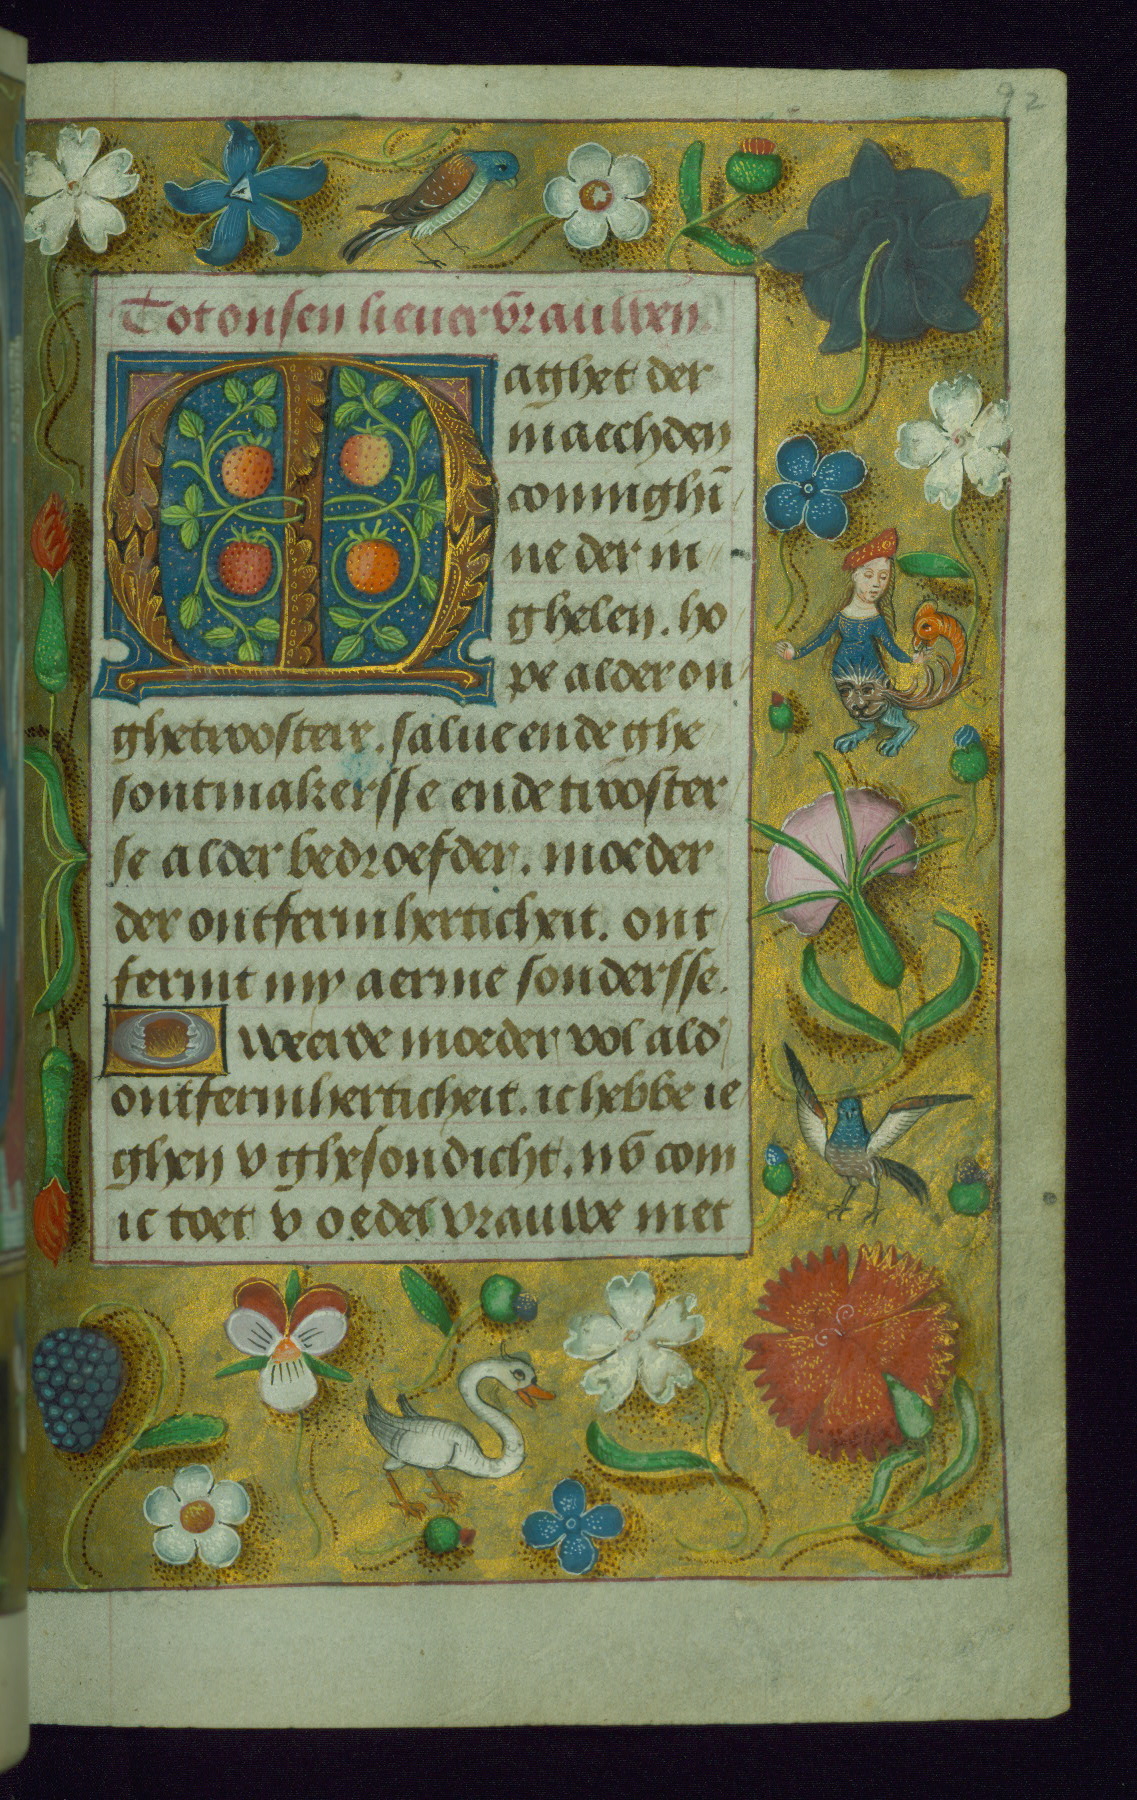 92
Tot onsen lieuer vrauwen.
Maghet der
maechden
coninghī
ne der in
ghelen. ho
pe alder on
ghetrooster̄. salue ende ghe
sontmakersse ende trooster
se alder bedroefder. moeder
der ontfermherticheit. ont
fermt mỹ aerme sondersse.
O weerde moeder vol ald'
ontfermherticheit. ic hebbe ie
ghen v ghesondicht. nv̄ com
ic toet v o edel vrauwe met